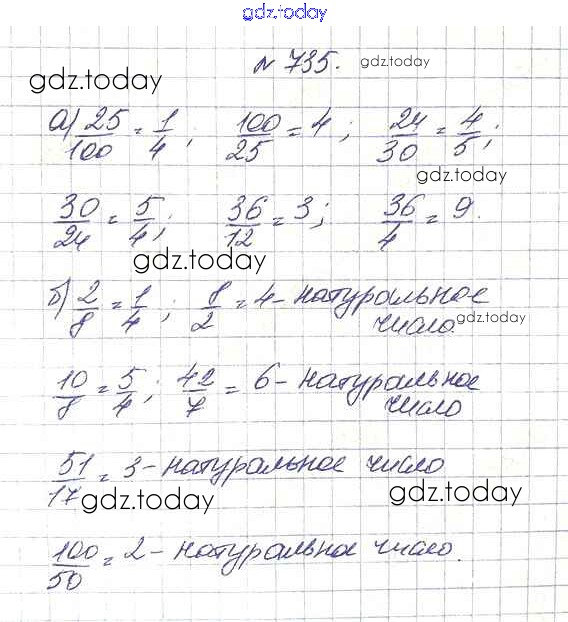 gdz.today
№ 735. gdz.today
gdz.today
а) 25/100 = 1/4; 100/25 = 4; 24/30 = 4/5;
gdz.today
30/24 = 5/4; 36/12 = 3; 36/4 = 9.
gdz.today
б) 2/8 = 1/4; 8/2 = 4 - натуральное
число. gdz.today
10/8 = 5/4; 42/7 = 6 - натуральное
число
51/17 = 3 - натуральное число
gdz.today gdz.today
100/50 = 2 - натуральное число.